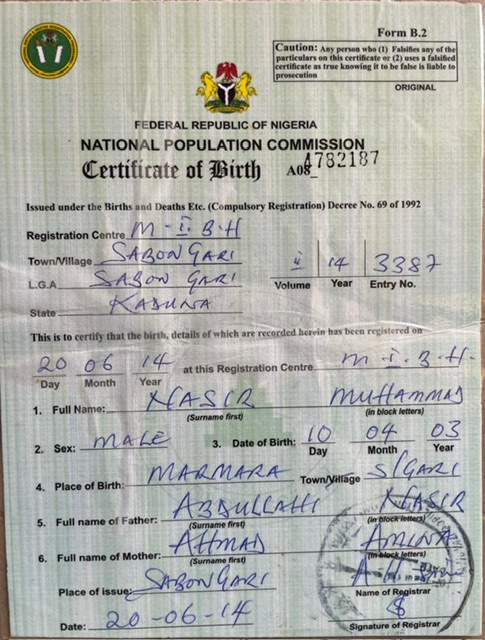 Form B.2
Caution: Any person who (1) Falsifies any of the
particulars on this certificate or (2) uses a falsified
certificate as true knowing it to be false is liable to
prosecution
ORIGINAL
FEDERAL REPUBLIC OF NIGERIA
NATIONAL POPULATION COMMISSION
Certificate of Birth A08_4782187
Issued under the Births and Deaths Etc. (Compulsory Registration) Decree No. 69 of 1992
Registration Centre M-I.B.H
Town/Village SABON GARI
L.G.A SABON GARI ii 14 3387
Volume Year Entry No.
State KADUNA
This is to certify that the birth, details of which are recorded herein has been registered on
20 06 14 at this Registration Centre M-I.B.H.
Day Month Year
1. Full Name: NASIR MUHAMMAD
(Surname first) (in block letters)
2. Sex: MALE 3. Date of Birth: 10 04 03
Day Month Year
4. Place of Birth: MARMARA Town/Village S/GARI
5. Full name of Father: ABDULLAHI NASIR
(Surname first) (in block letters)
6. Full name of Mother: AHMAD AMINA
(Surname first) (in block letters)
Place of issue: SABON GARI
Name of Registrar
Date: 20-06-14
Signature of Registrar